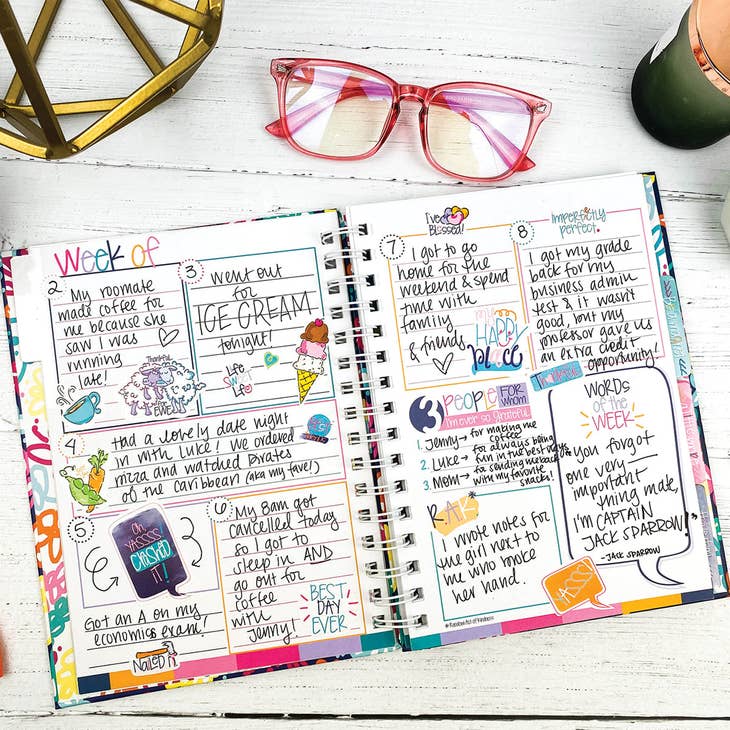 Week of
2
My roomate
made coffee for
me because she
saw I was
running
late!
Thankful
for EWE!
3
Went out
for
ICE CREAM
tonight!
Life
is
Sweet
Life
4
Had a lovely date night
in with Luke! We ordered
pizza and watched Pirates
of the Caribbean (aka my fave!)
5
Oh
YASSSS
CRUSHED
IT!
Got an A on my
economics exam!
Nailed it.
6
My 8am got
cancelled today
so I got to
sleep in AND
go out for
coffee
with
Jenny!
BEST
DAY
EVER
I've
Blessed!
7
I got to go
home for the
weekend & spend
time with
family
& friends
my
HAPPY
place
imperfectly
perfect.
8
I got my grade
back for my
business admin
test & it wasn't
good, but my
professor gave us
an extra credit
opportunity!
3 PEOPLE FOR
whom
I'm ever so grateful
1. Jenny → for making me
coffee
2. Luke → for always being
fun in the best days
3. Mom → for sending me back
with my favorite
snacks!
R.A.K
I wrote notes for
the girl next to
me who broke
her hand.
WORDS
of the
WEEK
"You forgot
one very
important
thing mate,
I'm CAPTAIN
JACK SPARROW"
-JACK SPARROW
YASSS!
* Random Act of Kindness